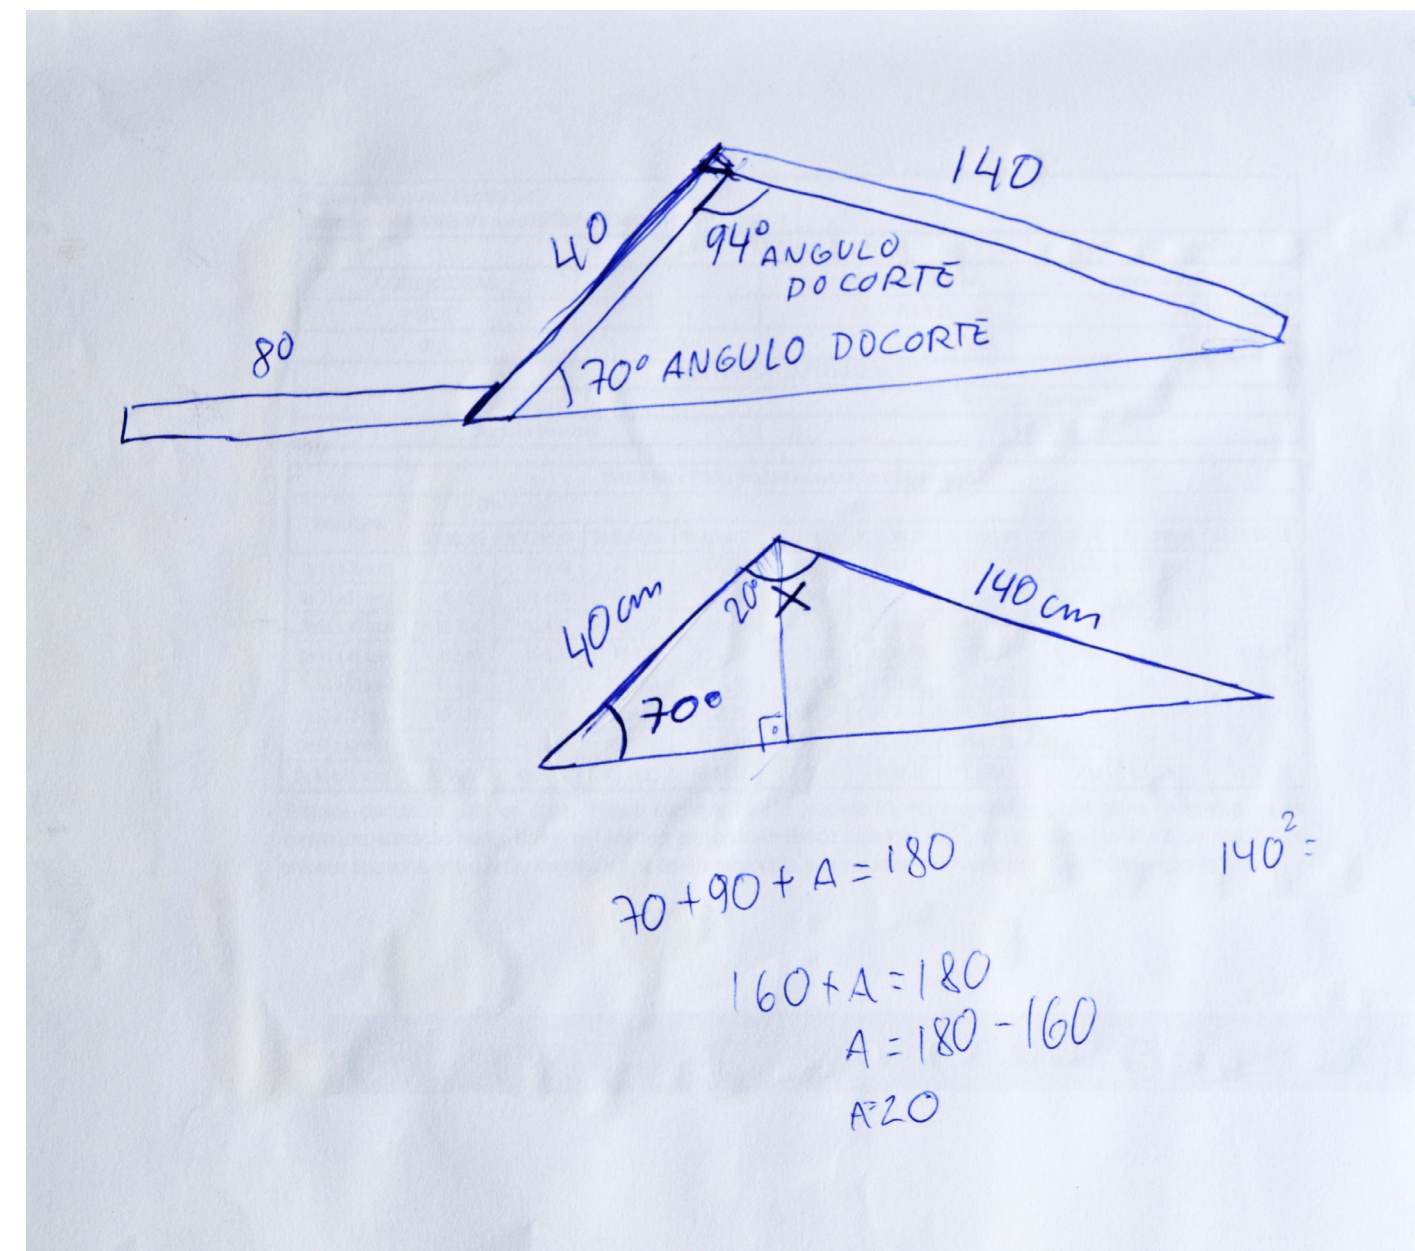 140
40
94° ANGULO
DO CORTE
80
70° ANGULO DO CORTE
40 cm
140 cm
20°
X
70°
140² =
70 + 90 + A = 180
160 + A = 180
A = 180 - 160
A = 20